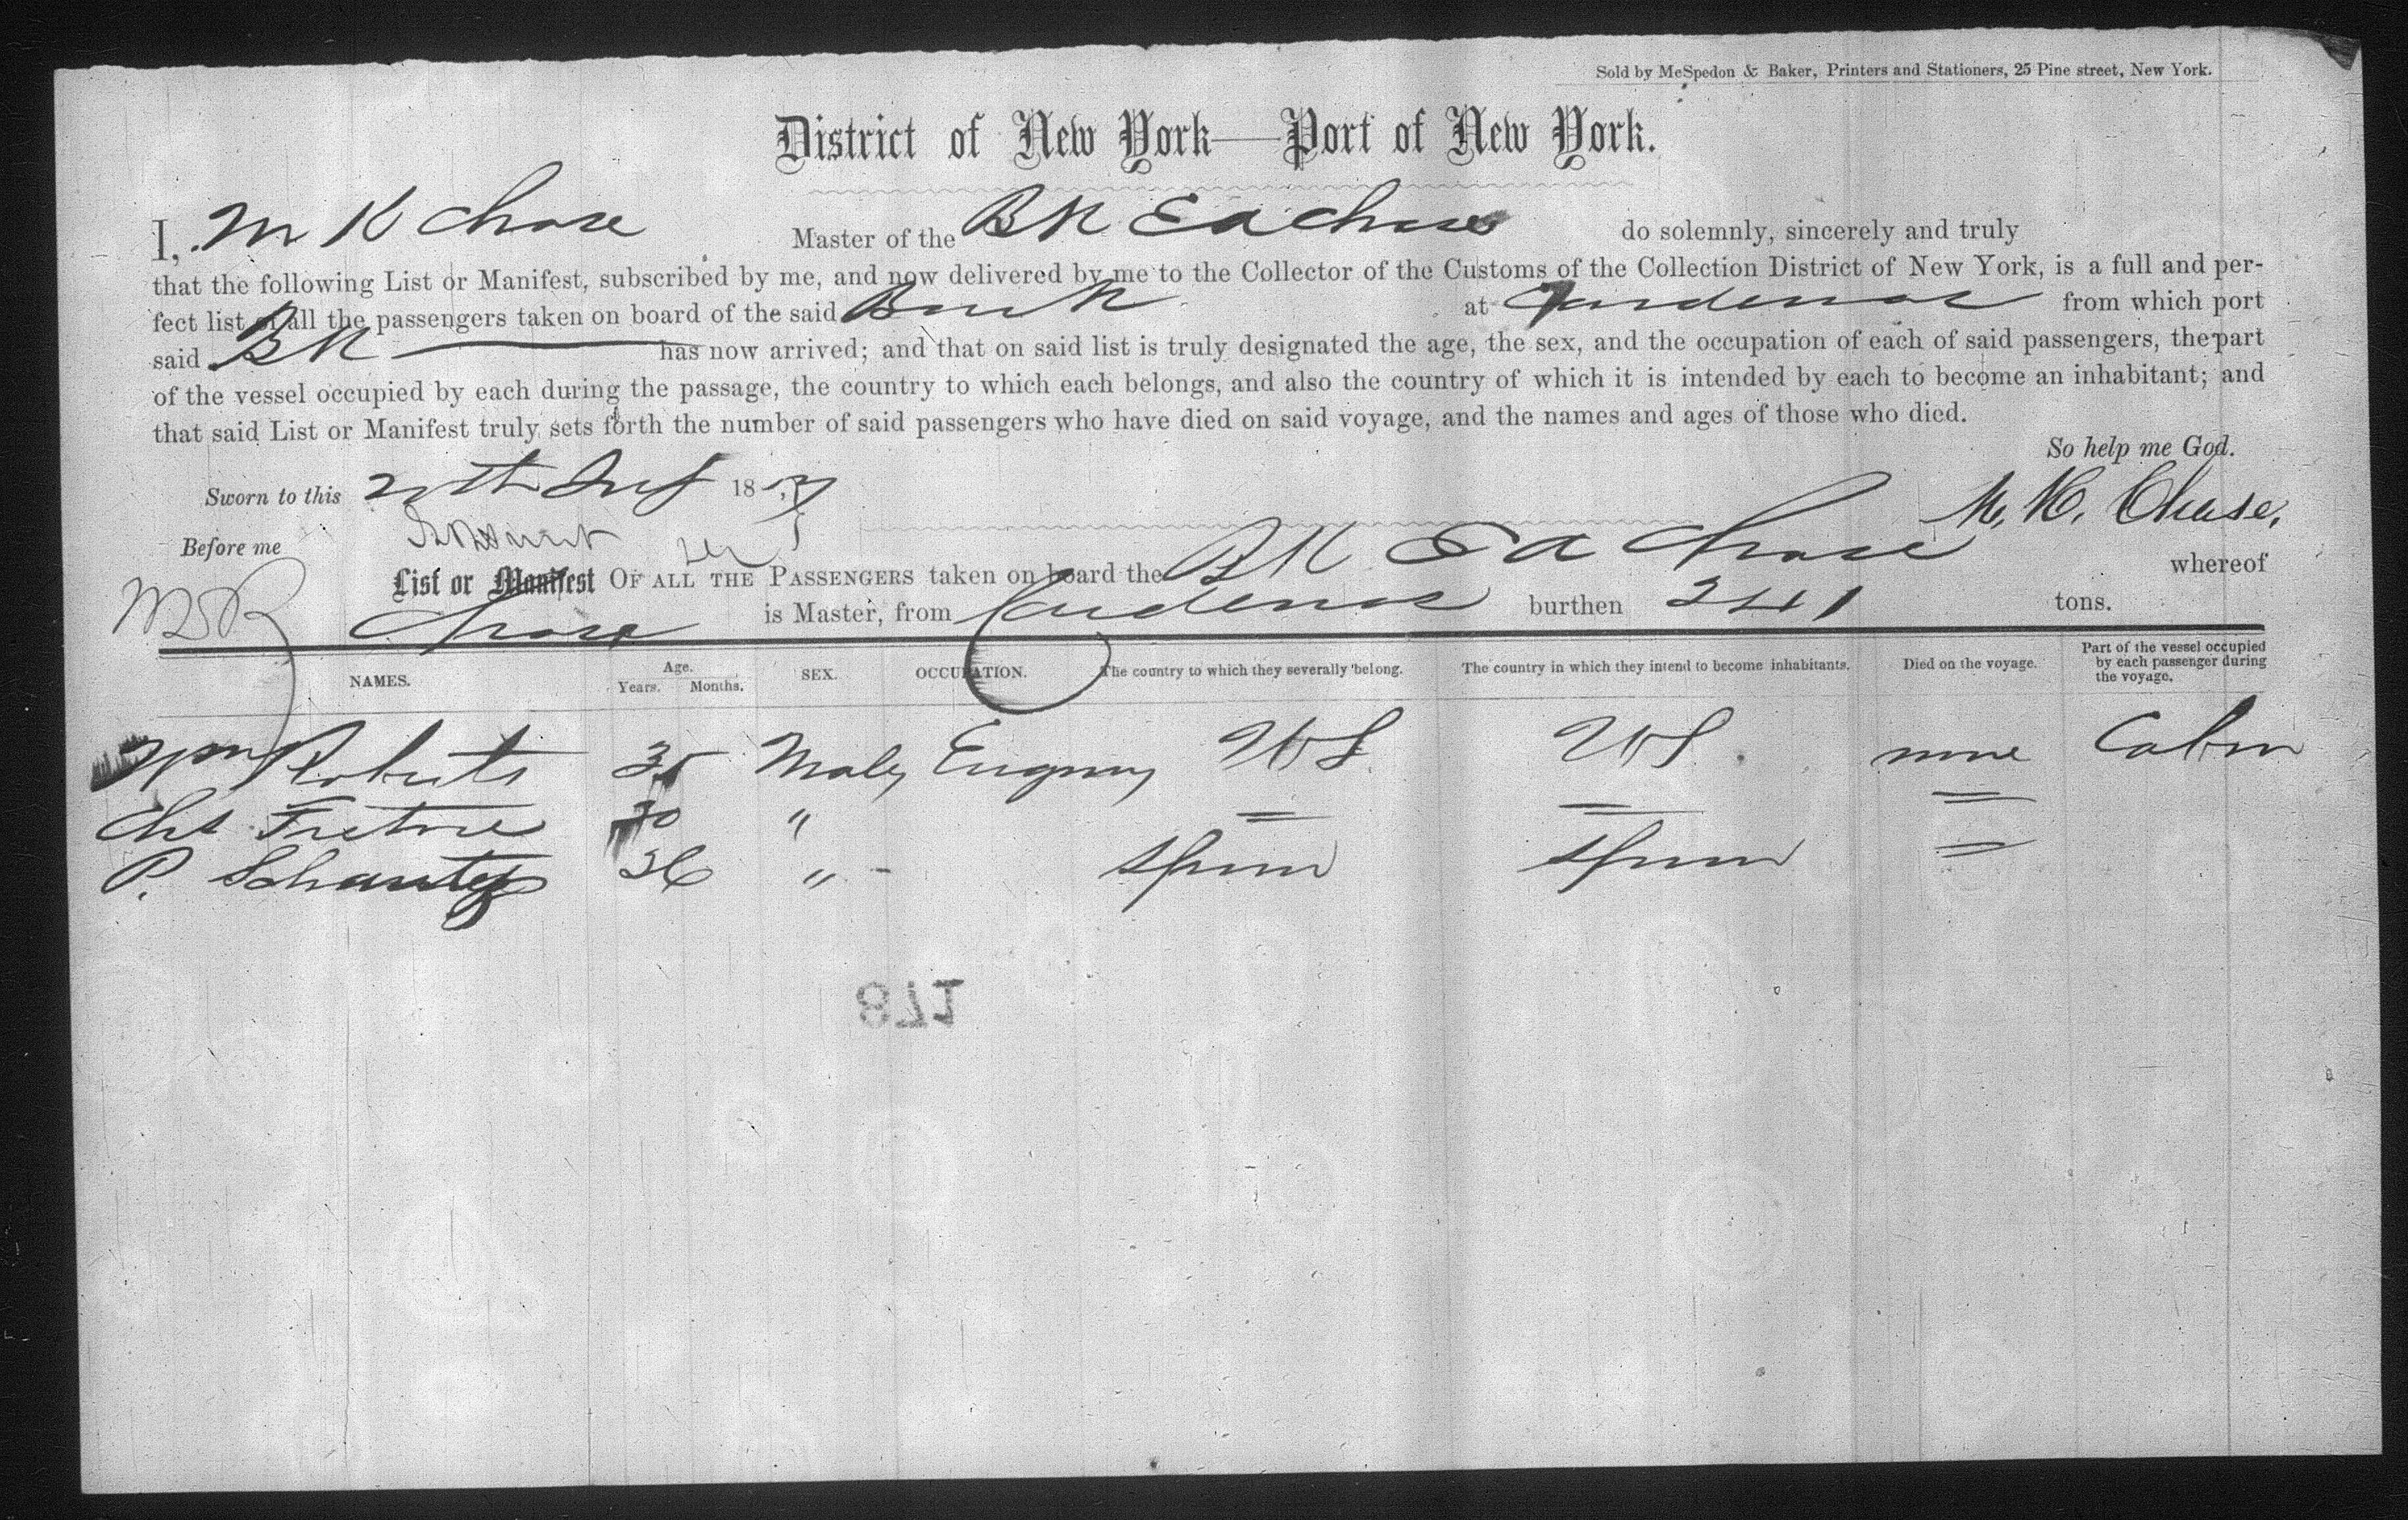 Sold by McSpedon & Baker, Printers and Stationers, 25 Pine street, New York.
District of New York—Port of New York.
I, M K Chase Master of the BK E A Chase do solemnly, sincerely and truly
that the following List or Manifest, subscribed by me, and now delivered by me to the Collector of the Customs of the Collection District of New York, is a full and per-
fect list of all the passengers taken on board of the said Bark at Cardenas from which port
said BK has now arrived; and that on said list is truly designated the age, the sex, and the occupation of each of said passengers, the part
of the vessel occupied by each during the passage, the country to which each belongs, and also the country of which it is intended by each to become an inhabitant; and
that said List or Manifest truly sets forth the number of said passengers who have died on said voyage, and the names and ages of those who died.
So help me God.
Sworn to this 18 M. K. Chase.
Before me
List or Manifest OF ALL THE PASSENGERS taken on board the BK E A Chase whereof
Chase is Master, from Cardenas burthen 241 tons.
NAMES. Age. Years. Months. SEX. OCCUPATION. The country to which they severally belong. The country in which they intend to become inhabitants. Died on the voyage. Part of the vessel occupied by each passenger during the voyage.
Wm Roberts 35 Male US US none Cabin
30 " = = =
P. 36 " - Spain Spain =
871